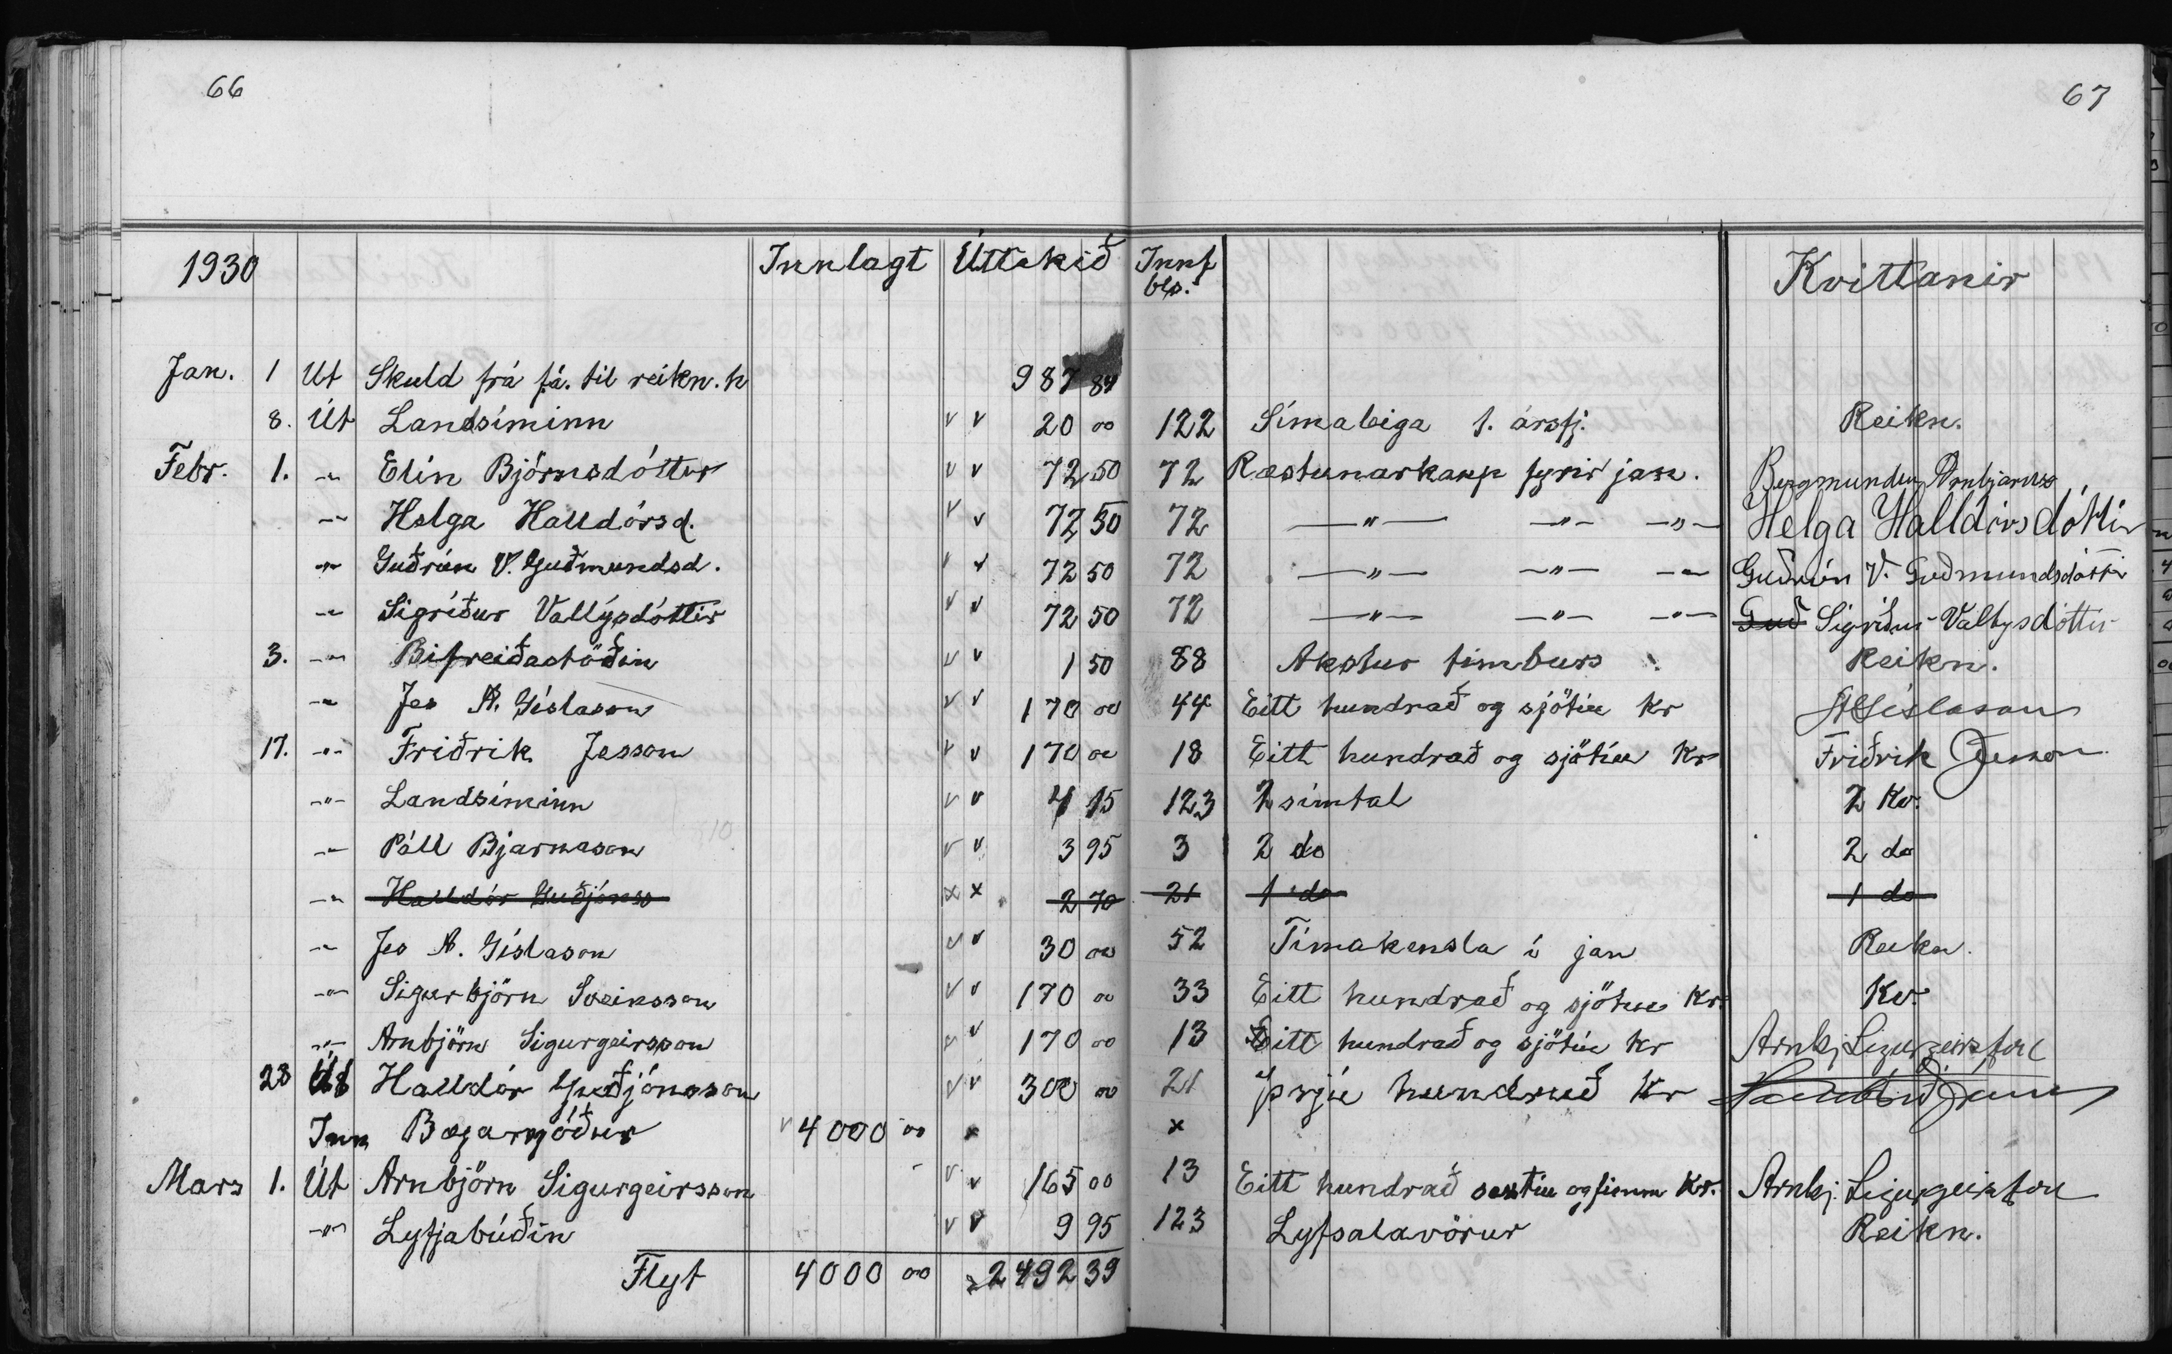 66
67
1930 Innlagt Úttekið Innf bls. Kvittanir
Jan. 1 Út Skuld frá f.á. til reikn.h 987 84
8. Út Landsíminn v v 20 00 122 Símaleiga 1. ársfj. Reikn.
Febr. 1. -"- Elín Björnsdóttur v v 72 50 72 Ræstunarkaup fyrir jan.
-"- Helga Halldórsd. v v 72 50 72 -"- -"- -"- Helga Halldórsdóttir
-"- Guðrún V. Guðmundsd. v v 72 50 72 -"- -"- -"- Guðrún V. Guðmundsdóttir
-"- Sigríður Valtýsdóttir v v 72 50 72 -"- -"- -"- Guð Sigríður Valtýsdóttir
3. -"- Bifreiðastöðin v v 1 50 88 Akstur timburs Reikn.
-"- Jes A. Gíslason v v 170 00 44 Eitt hundrað og sjötíu kr JAGíslason
17. -"- Friðrik Jesson v v 170 00 18 Eitt hundrað og sjötíu kr Friðrik Jesson
-"- Landsíminn v v 4 15 123 2 símtal 2 Kv.
-"- Páll Bjarnason v v 3 95 3 2 do 2 do
-"- Halldór Guðjónss x x 2 70 21 1 do 1 do
-"- Jes A. Gíslason v v 30 00 52 Tímakensla í jan Reikn.
-"- Sigurbjörn Sveinsson v v 170 00 33 Eitt hundrað og sjötíu Kr. Kv.
-"- Arnbjörn Sigurgeirsson v v 170 00 13 Eitt hundrað og sjötíu kr Arnbj. Sigurgeirsson
28 Út Halldór Guðjónsson v v 300 00 21 Þrjú hundruð kr
Inn Bæjarsjóður v 4000 00 x x
Mars 1. Út Arnbjörn Sigurgeirsson v v 165 00 13 Eitt hundrað sextíu og fimm Kr. Arnbj. Sigurgeirsson
-"- Lyfjabúðin v v 9 95 123 Lyfsalavörur Reikn.
Flyt 4000 00 2492 39